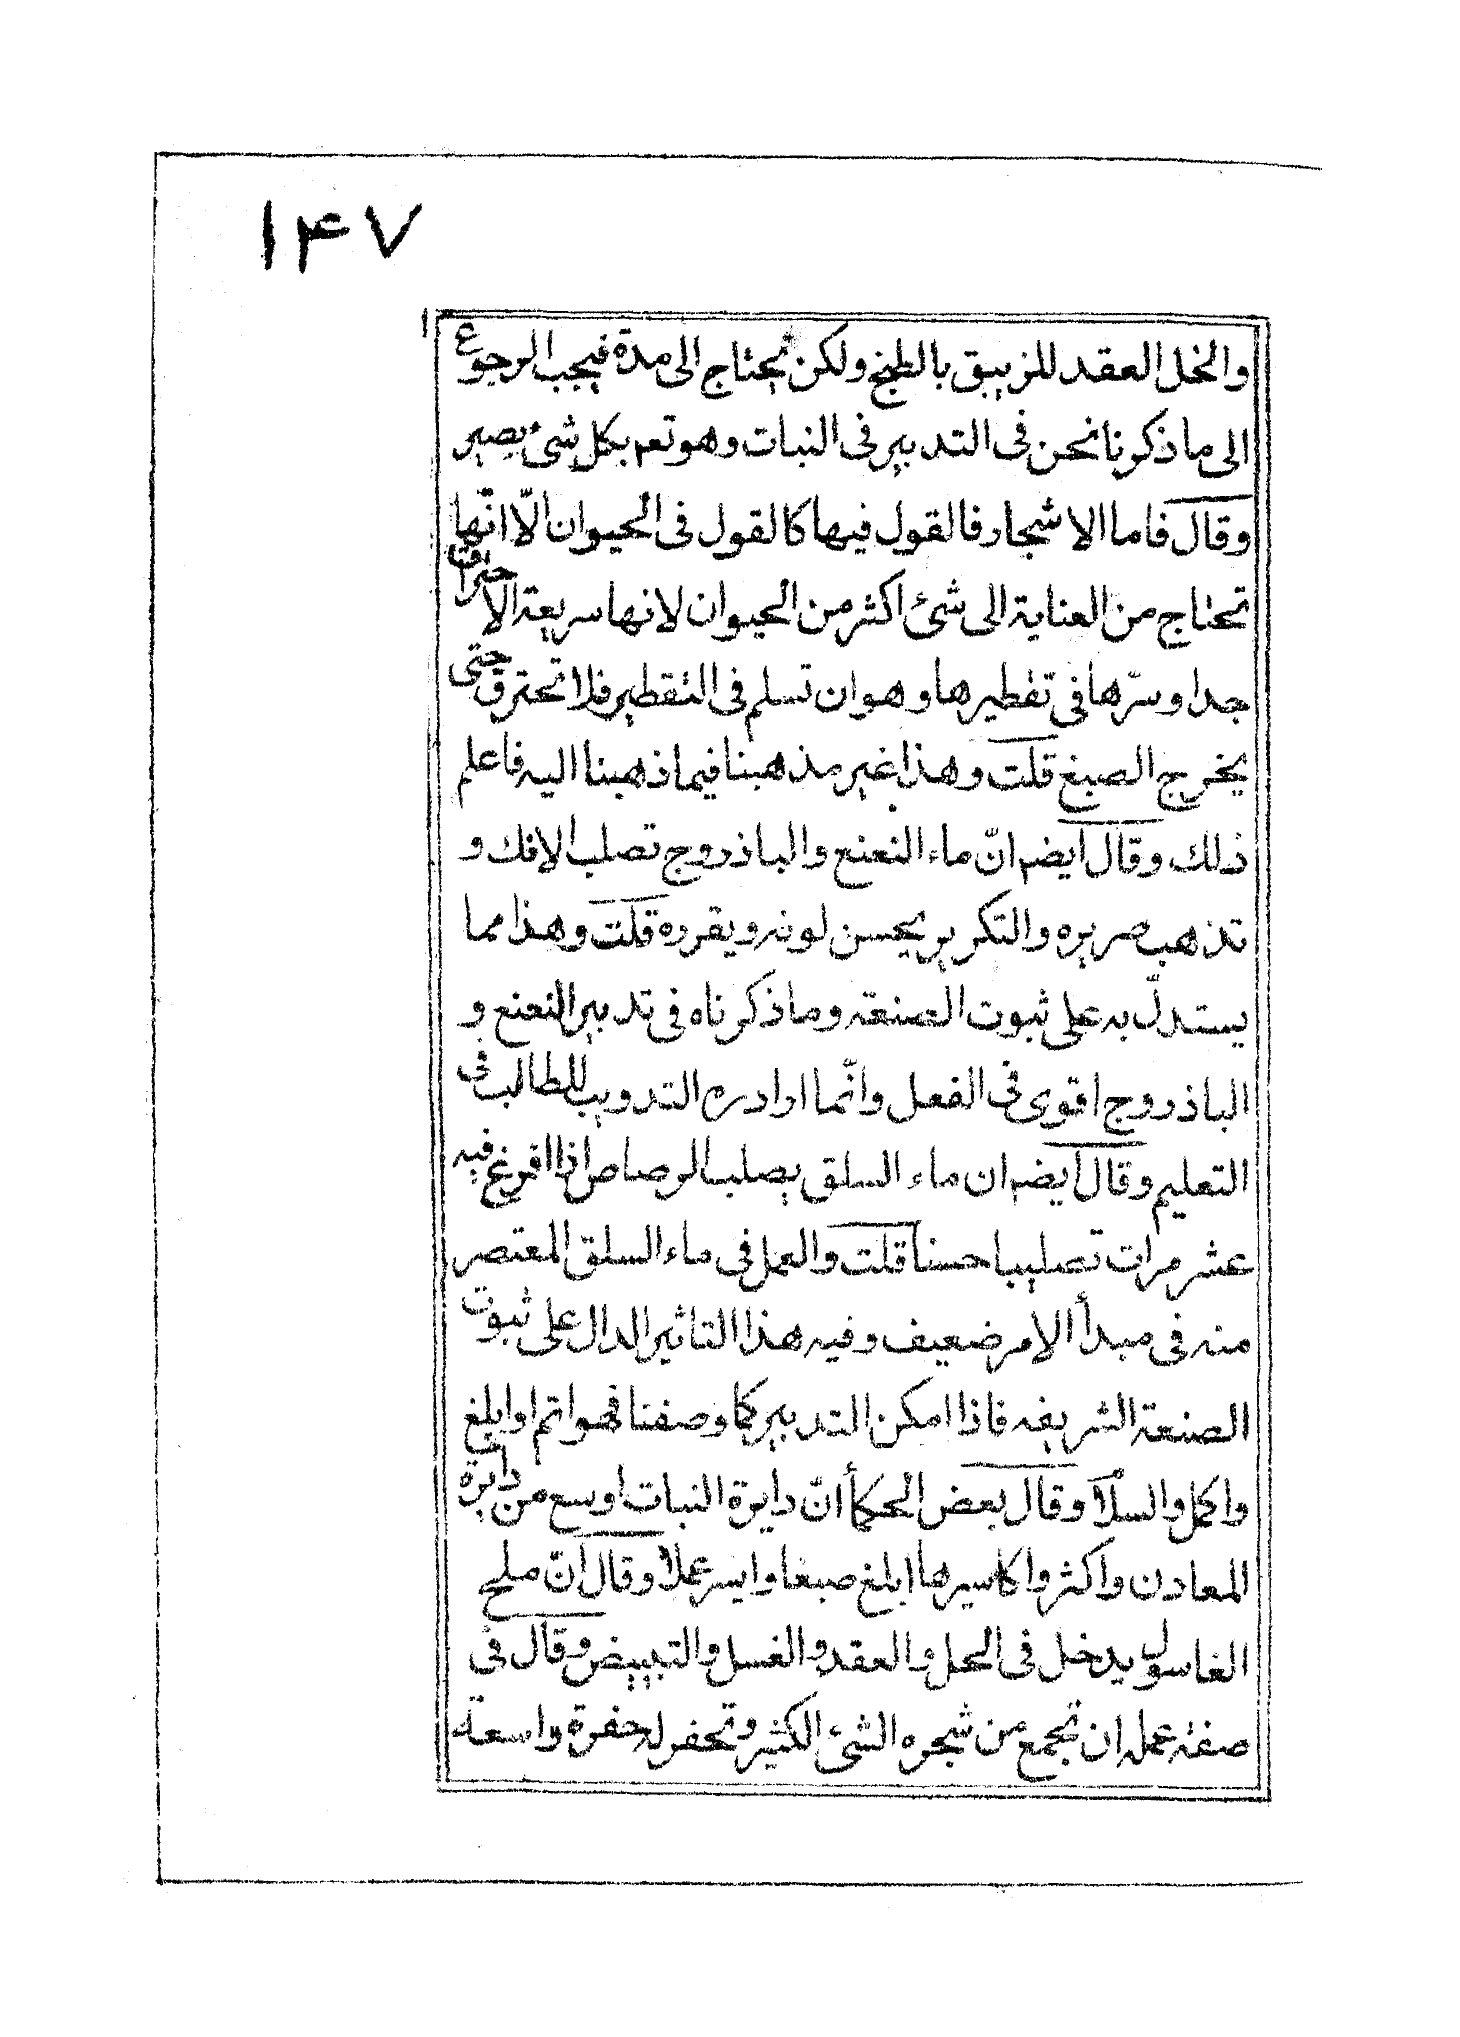 ۱۴۷
والخل العقد للزيبق بالطبخ ولكن يحتاج الى مدة فيجب الرجوع
الى ما ذكرنا نحن فى التدبير فى النبات وهو تعم بكل شئ يصير
وقال فاما الاشجار فالقول فيها كالقول فى الحيوان الّا انّها
تحتاج من العناية الى شئ اكثر من الحيوان لانها سريعة الاحتراق
جدا وسرّها فى تقطيرها وهو ان تسلم فى التقطير فلا تحترق حتى
يخرج الصبغ قلت وهذا غير مذهبنا فيما ذهبنا اليه فاعلم
ذلك وقال ايضه انّ ماء النعنع والباذروج تصلب الانك و
تذهب صريره والتكرير يحسن لونه ويقرده قلت وهذا مما
يستدلّ به على ثبوت الصنعة وما ذكرناه فى تدبير النعنع و
الباذروج اقوى فى الفعل وانّما اراد ره التدويب للطالب فى
التعليم وقال ايضه ان ماء السلق يصلب الرصاص اذا افرغ فيه
عشر مرات تصليبا حسنا قلت والعمل فى ماء السلق المعتصر
منه فى مبدأ الامر ضعيف وفيه هذا التاثير الدال على ثبوت
الصنعة الشريفه فاذا امكن التدبير كما وصفنا فهو اتم وابلغ
واكمل والسلاَ وقال بعض الحكمأ انّ دايرة النبات اوسع من دايرة
المعادن واكثر واكاسيرها ابلغ صبغا وايسر عملا وقال انّ ملح
الغاسول يدخل فى الحل والعقد والغسل والتبييض وقال فى
صفة عمله ان تجمع من شجره الشئ الكثير وتحفر له حفرة واسعة